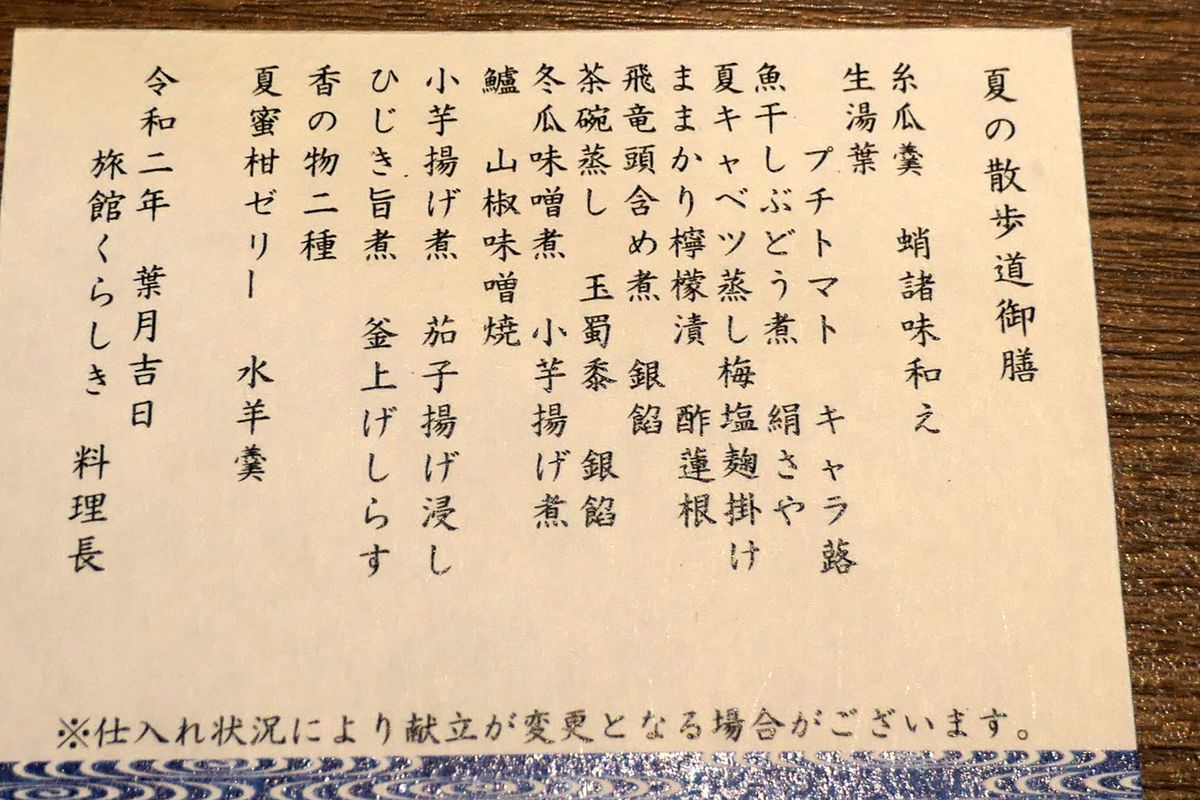 夏の散歩道御膳
糸瓜羹 蛸諸味和え
生湯葉 プチトマト キャラ蕗
魚干しぶどう煮 絹さや
夏キャベツ蒸し梅塩麹掛け
ままかり檸檬漬 酢蓮根
飛竜頭含め煮 銀餡
茶碗蒸し 玉蜀黍 銀餡
冬瓜味噌煮 小芋揚げ煮
鱸 山椒味噌焼
小芋揚げ煮 茄子揚げ浸し
ひじき旨煮 釜上げしらす
香の物二種
夏蜜柑ゼリー 水羊羹
令和二年 葉月吉日
旅館くらしき 料理長
※仕入れ状況により献立が変更となる場合がございます。